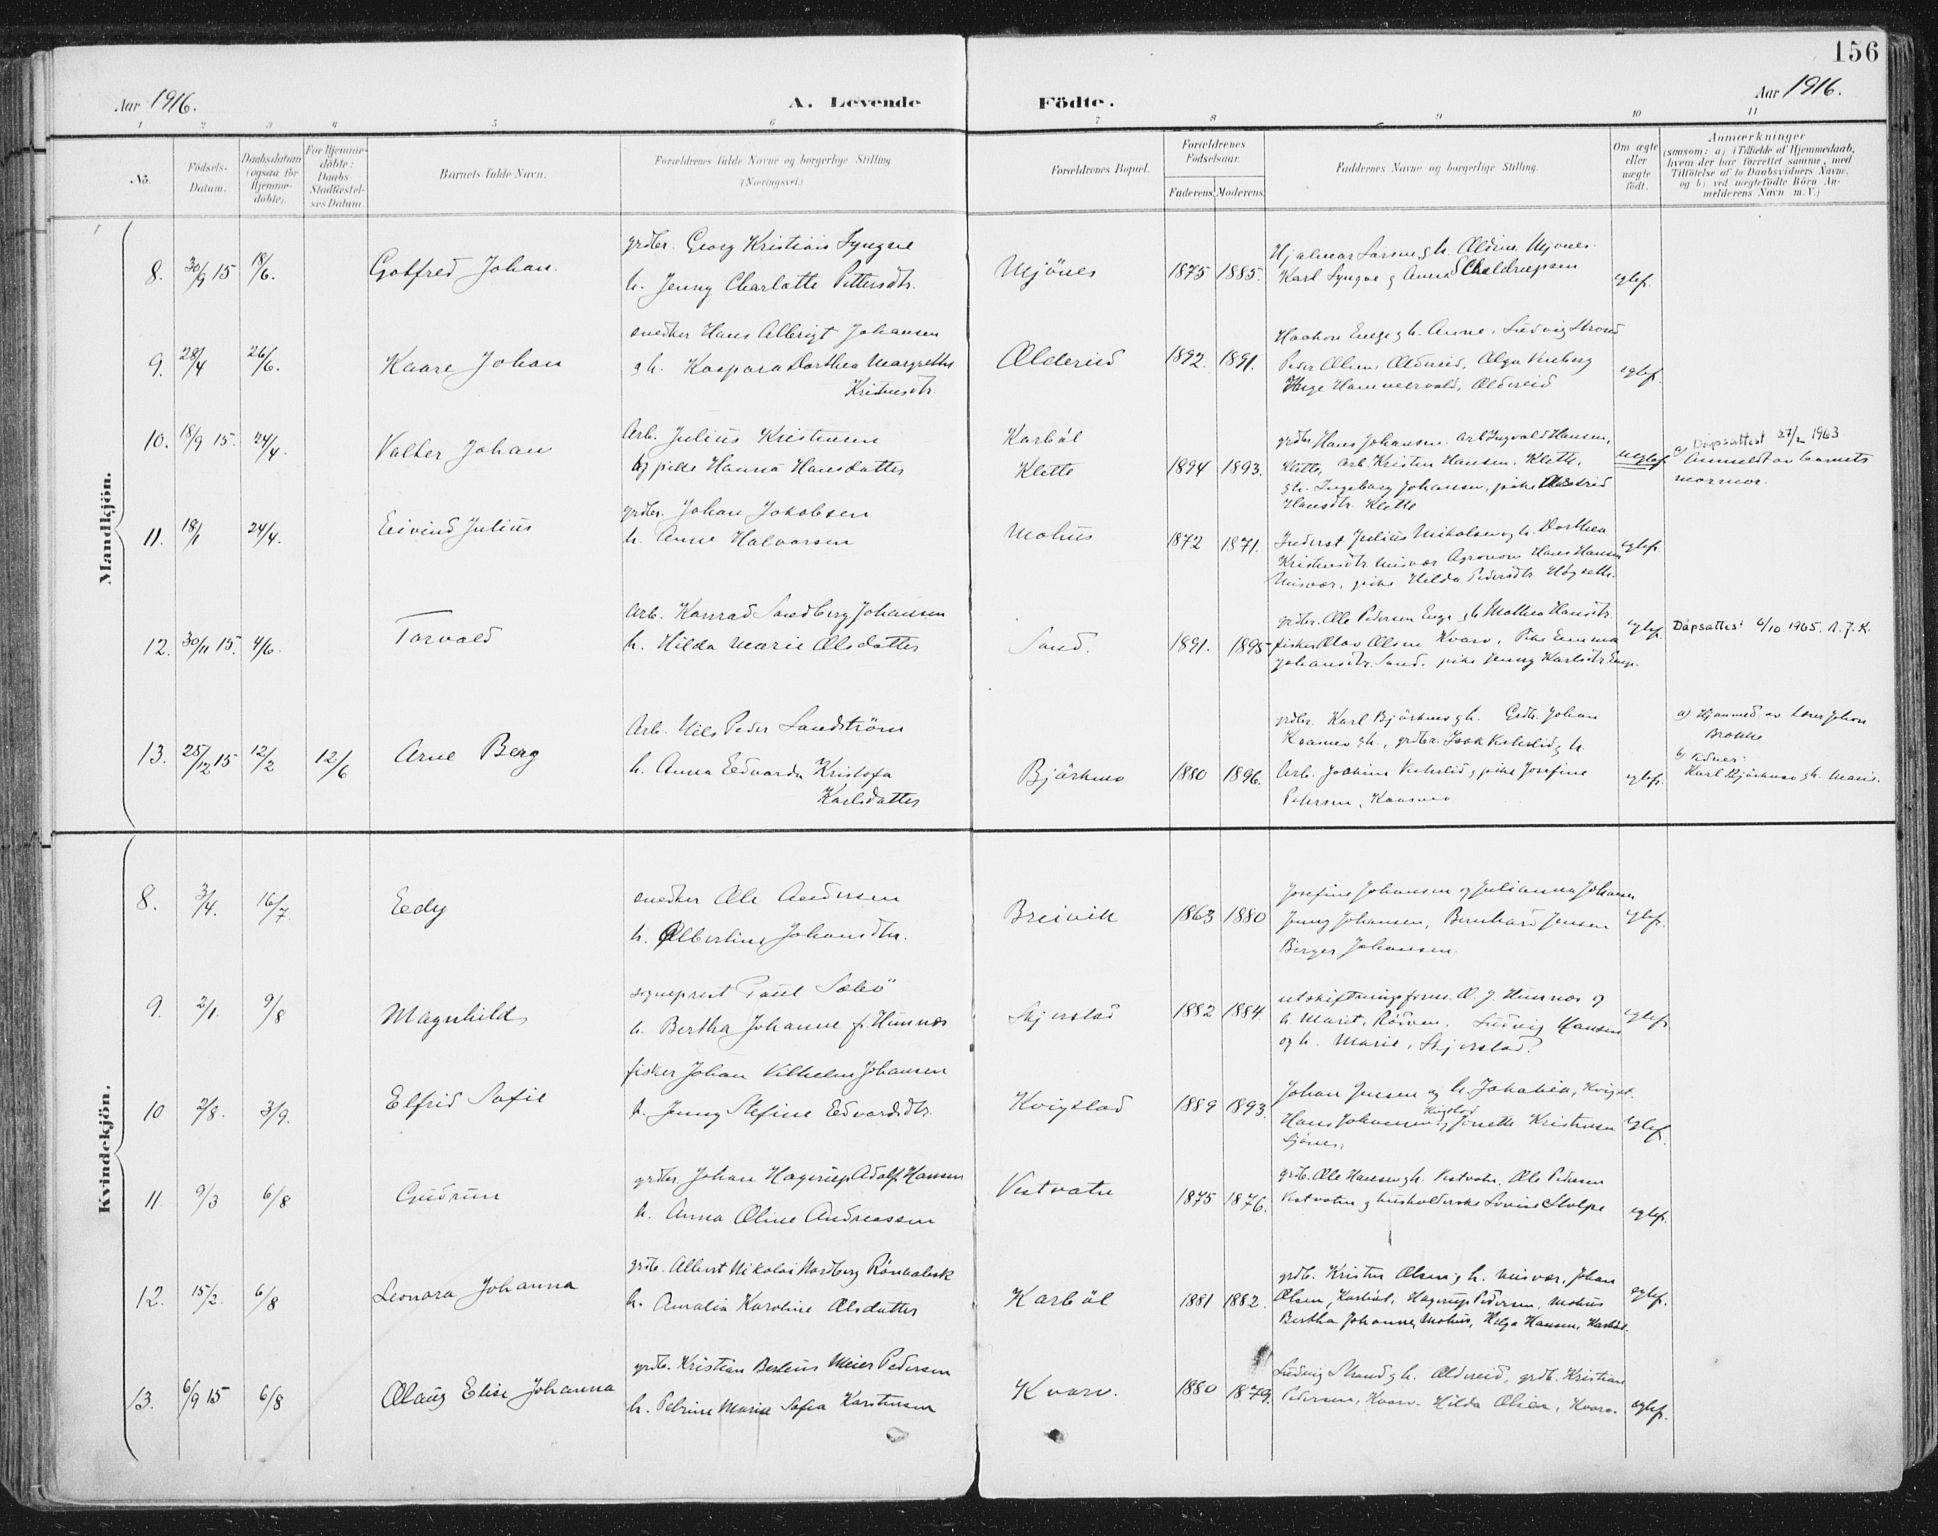 156
Aar 1916.
A. Levende
Fødte.
Aar 1916.
1 2 3 4 5 6 7 8 9 10 11
No.
Födsels-
Datum.
Daabsdatum
(ogsaa for
Hjemme-
döbte).
For Hjemme-
döbte:
Daabs-
Stadfæstel-
ses Datum
Barnets fulde Navn.
Forældrenes fulde Navne og borgerlige Stilling.
(Næringsvei.)
Forældrenes Bopæl.
Forældrenes
Födselsaar.
Faderens. Moderens.
Faddernes Navne og borgerlige Stilling.
Om ægte
eller
uægte
født.
Anmærkninger
(saasom: a) i Tilfælde af Hjemmedaab,
hvem der har forrettet samme, med
Tilföielse af to Daabsvidners Navne,
og b) ved uægtefödte Börn An-
melderens Navn m. V.)
Mandkjön.
8. 30/9 15 18/6. Gotfred Johan.
grdbr. Georg Kristian Lyngve
h. Jenny Charlotte Pettersdtr.
Mjönes 1875 1885.
Hjalmar Larsen g h. Mjönes.
Karl Lyngve g Anna
egtef.
9. 28/4 26/6. Kaare Johan
snedker Hans Albrigt Johansen
g h. Kaspara Dorthea Margrethe
Kristensdtr.
Oldereid 1892. 1891.
Haakon Enge g h. Anne, Ludvig Strand
Peder Olsen, Oldereid, Olga
Hammervold, Oldereid
egtef.
10. 18/9 15. 24/4. Valter Johan
Arb. Julius Kristensen
og pike Hanna Hansdatter
Karböl
Klette 1894 1893.
grdbr Hans Johansen. Arb Ingvald Hansen,
Klette, Arb. Kristen Hansen, Klette,
g h. Ingeborg Johansen, pike Astrid
Hansdtr. Klette
uegtef.
Dåpsattest 27/2 1963
a) Anmeldt av barnets
mormor.
11. 18/1 24/4. Eivind Julius
grdbr. Johan Jakobsen
h. Anne Halvorsen
Mohus 1872 1871.
Inderst Julius Nikolsen g h. Dorthea
Kristensdtr. Misvær Agronom Hans Hansen
Misvær, pike Hilda Pedersdtr. Høgseth.
egtef.
12. 30/11 15. 4/6. Torvald
Arb. Konrad Sandberg Johansen
h. Hilda Marie Olsdatter
Sand. 1891. 1895
grdbr. Ole Pedersen Enge g h Mathea Hansdtr.
fisker Olav Olsen Kvarv, Pike Emma
Johansdtr. Sand. pike Jenny Karlsdtr. Enge.
egtef.
Dåpsattest 6/10 1965. A.J.K.
13. 25/12 15 12/2 12/6 Arne Berg
Arb. Nils Peder Sandström
h. Anna Edvarda Kristofa
Karlsdatter
Björkmo 1880 1896.
grdbr. Karl Björkmo g h. Johan
Kosmo g h., grdbr. Isak g h.
Arb. Joakim g pike Josefine
Petersen, Kosmo
egtef.
a) Hjemmed. av Lærer Johan
Brokke
b) Vidner:
Karl Björkmo g h. Marie.
Kvindekjön.
8. 3/4. 16/7. Eedy
snedker Ole Andersen
h. Albertine Johansdtr.
Breivik 1863 1880
Josefine Johansen og Julianna Johansen
Jenny Johansen, Bernhard Jensen
Birger Johansen.
egtef.
9. 2/1. 9/8 Magnhild
sogneprest Paul Sæbö
h. Bertha Johanne f. Humnes
Skjerstad 1882 1884
utskiftningsform. O. J. Humnes og
h. Marit, Rödven. Ludvig Hansen
og h. Marie, Skjerstad.
egtef.
10 2/8. 3/9. Elfrid Sofie
fisker Johan Vilhelm Johansen
h. Jenny Stefine Edvardsdtr.
Kvigstad 1889 1893.
Johan Jensen og h. Johanna, Kvigst.
Hans Johansen Kvigstad g Jonette Kristensen
egtef.
11. 9/3 6/8 Gudrun
grdbr Johan Hagerup Adolf Hansen
h. Anna Oline Andreassen
Vestvatn 1875 1876.
grdb. Ole Hansen g h. Vestvatn, Ole Pedersen
Vestvatn g husholderske Lovise Stolpe
egtef.
12. 15/2. 6/8 Leonora Johanna
grdb. Albert Nikolai Nordberg Rönbakk
h. Amalia Karoline Olsdatter
Karböl 1881 1882.
grdb. Kristen Olsen g h. Misvær, Johan
Olsen, Karböl, Hagerup Pedersen, Mohus
Bertha Johanne Mohus, Helga Hansen, Karböl.
egtef.
13. 6/9 15 6/8 Olaug Elise Johanna
grdb. Kristian Berleus Meier Pedersen
h. Petrine Marie Sofia Karstensen
Kvarv. 1880 1879.
Ludvig Strand g h. Oldereid, grdb. Kristian
Pedersen, Kvarv. Hilda Olsen, Kvarv.
egtef.